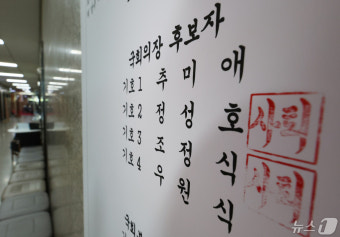 국회의장 후보자
기호 1 추미애
기호 2 정성호
기호 3 조정식
기호 4 우원식
사퇴
사퇴
뉴스1